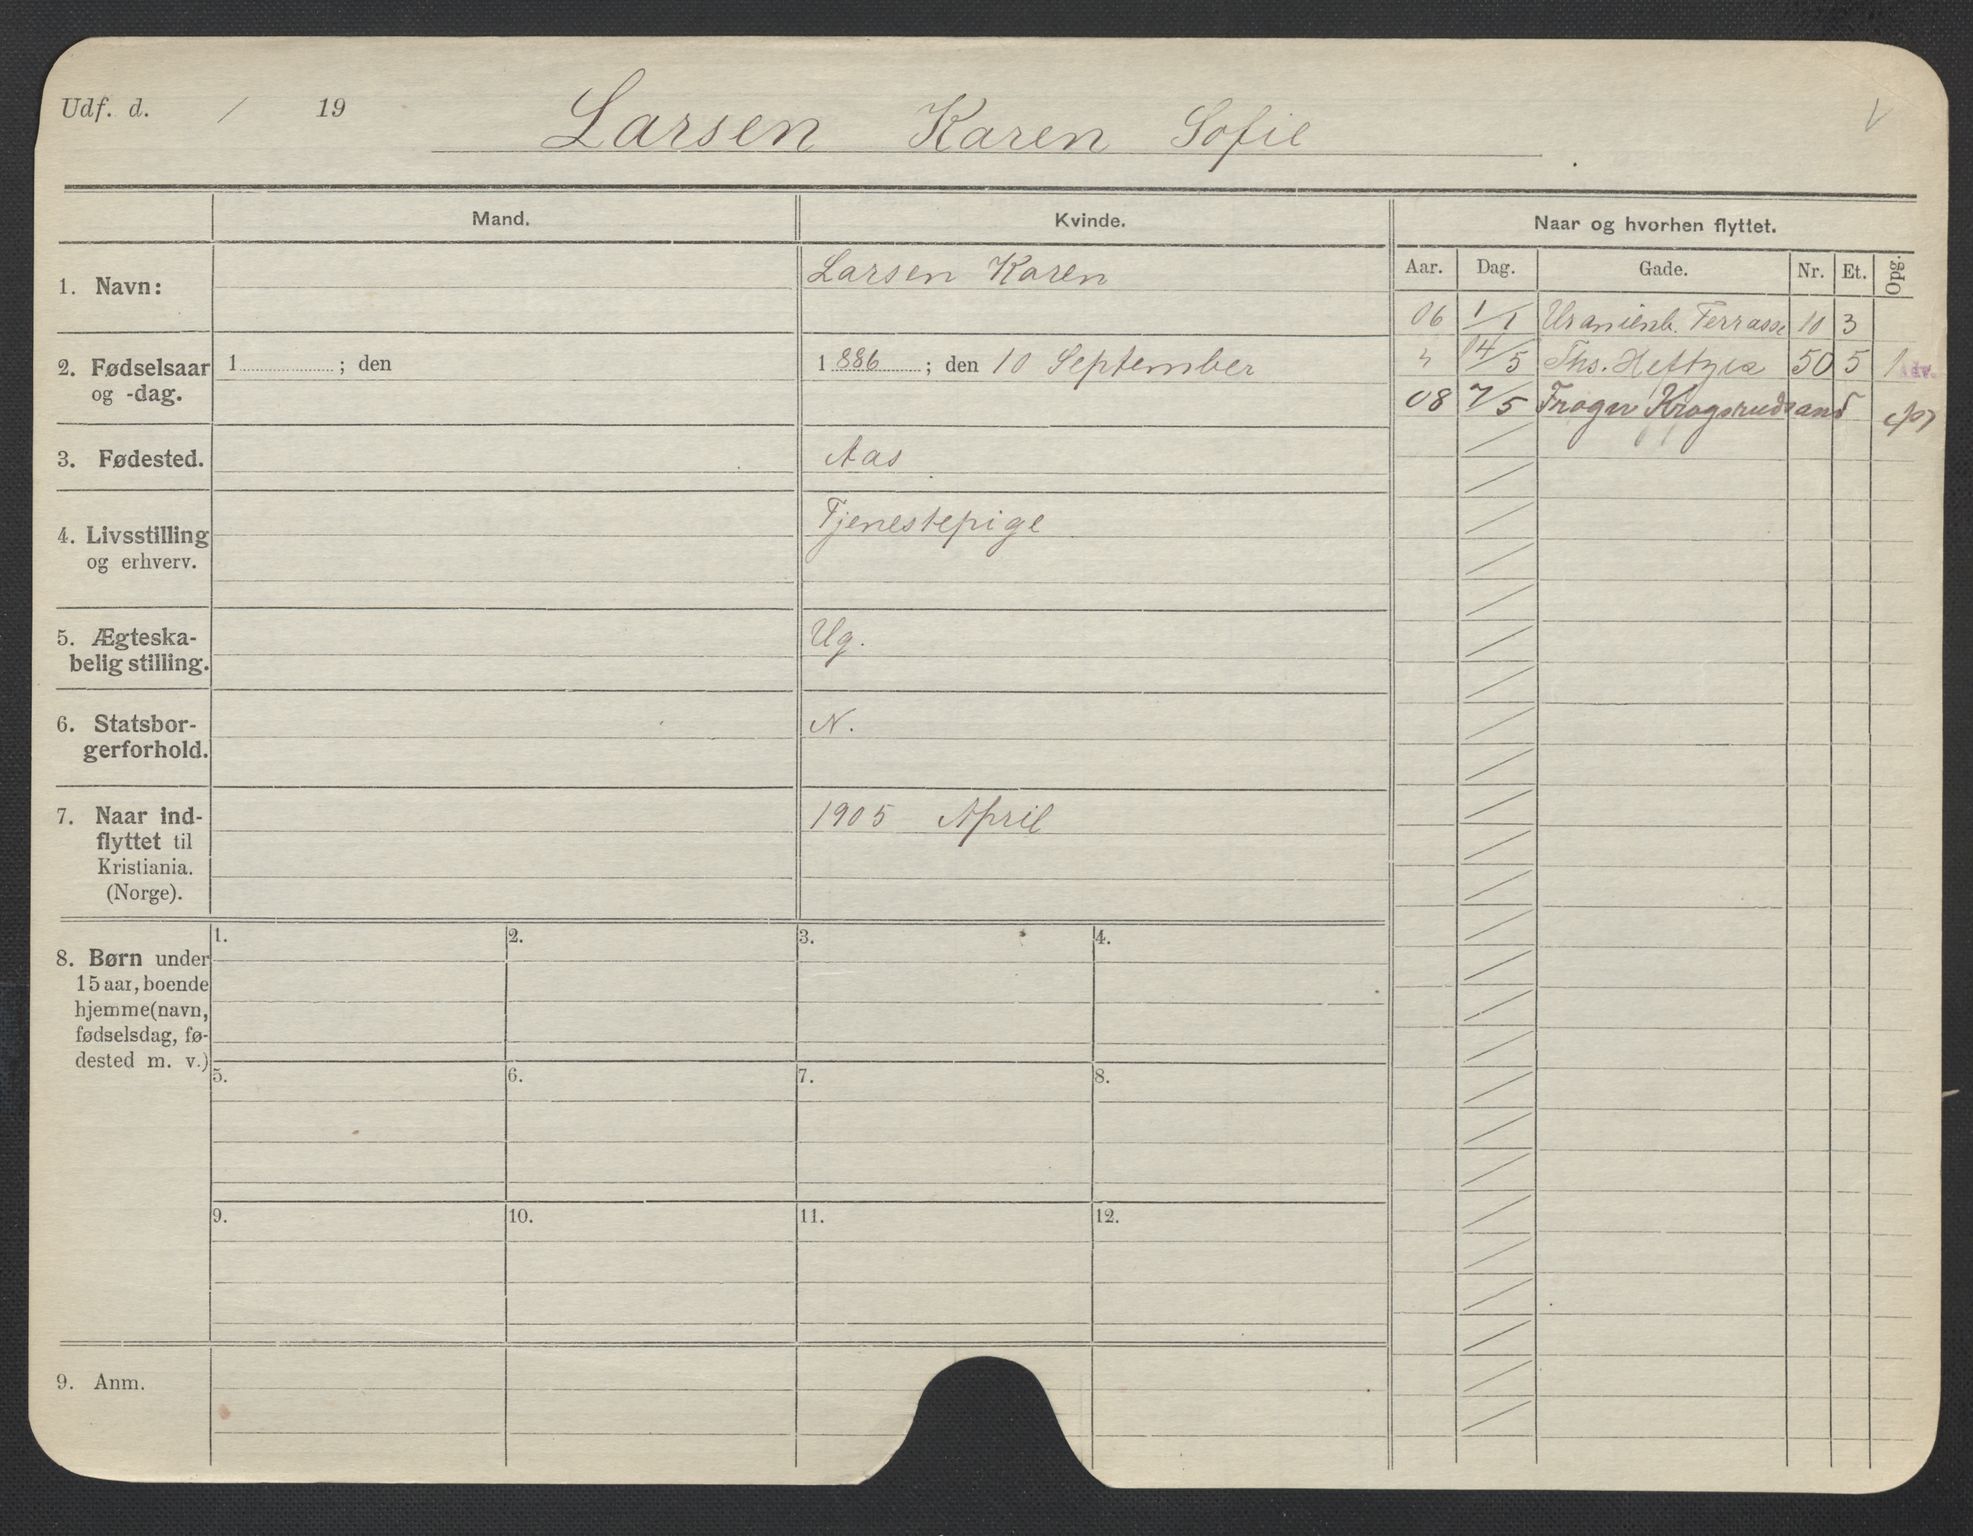 Udf. d. / 19
Larsen Karen Sofie
Mand.
Kvinde.
Naar og hvorhen flyttet.
Aar. Dag. Gade. Nr. Et. Opg.
1. Navn:
Larsen Karen
06 1/1 Uranienb. Terrasse 10 3
" 14/5 Ths. Heftyes 50 5 1 Adv.
08 7/5 Frogn Krogsrud
2. Fødselsaar
og -dag.
1 ; den
1886 ; den 10 September
3. Fødested.
Aas
4. Livsstilling
og erhverv.
Tjenestepige
5. Ægteska-
belig stilling.
Ug.
6. Statsbor-
gerforhold.
N.
7. Naar ind-
flyttet til
Kristiania.
(Norge).
1905 April
8. Børn under
15 aar, boende
hjemme (navn,
fødselsdag, fø-
dested m. v.)
1. 2. 3. 4.
5. 6. 7. 8.
9. 10. 11. 12.
9. Anm.